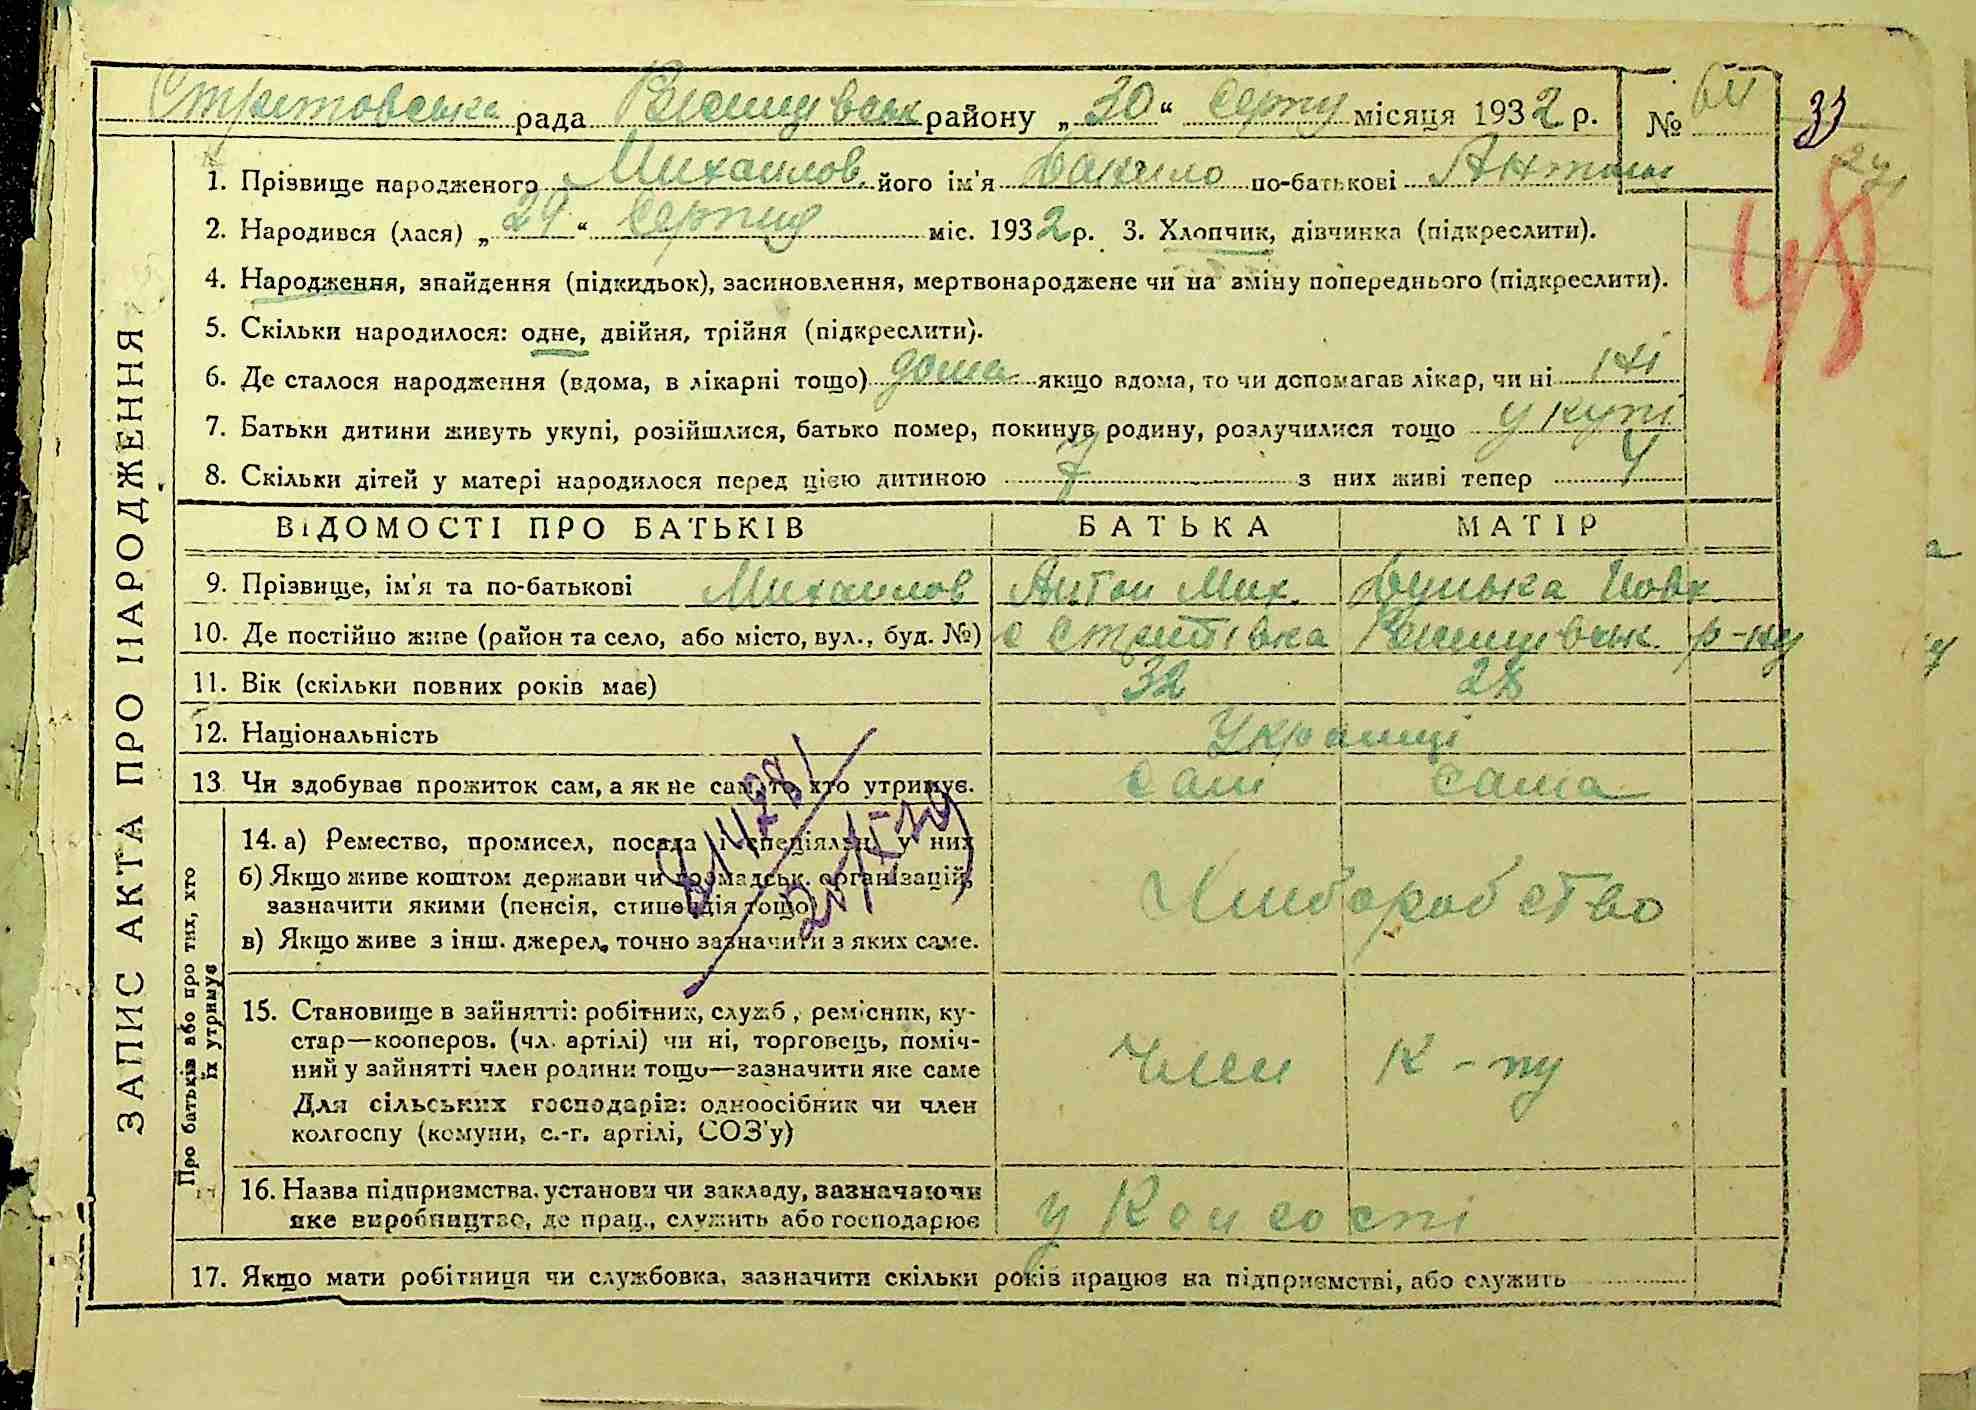 Стритовська рада Ржищівськ району „30“ Серпн місяця 1932 р. № 64
33
1. Прізвище народженого Михаилов його ім'я Данило по-батькові Антон
48
2. Народився (лася) „29“ Серпня міс. 1932 р. 3. Хлопчик, дівчинка (підкреслити).
4. Народження, знайдення (підкидьок), засиновлення, мертвонароджене чи на зміну попереднього (підкреслити).
5. Скільки народилося: одне, двійня, трійня (підкреслити).
6. Де сталося народження (вдома, в лікарні тощо) дома якщо вдома, то чи допомагав лікар, чи ні ні
7. Батьки дитини живуть укупі, розійшлися, батько помер, покинув родину, розлучилися тощо у купі
8. Скільки дітей у матері народилося перед цією дитиною 7 з них живі тепер 4
ЗАПИС АКТА ПРО НАРОДЖЕННЯ
ВІДОМОСТІ ПРО БАТЬКІВ БАТЬКА МАТІР
9. Прізвище, ім'я та по-батькові Михаилов Антон Мих. Дунька Йовх.
10. Де постійно живе (район та село, або місто, вул., буд. №) с Стритівка Ржищівськ. р-ну
11. Вік (скільки повних років має) 32 28
12. Національність Українці
13 Чи здобуває прожиток сам, а як не сам, то хто утримує. сам сама
Про батьків або про тих, хто
їх утримує
14. а) Ремество, промисел, посада і спеціяльн. у них
б) Якщо живе коштом держави чи громадськ. організацій,
зазначити якими (пенсія, стипендія тощо)
в) Якщо живе з інш. джерел, точно зазначити з яких саме.
Хлиборобство
15. Становище в зайнятті: робітник, служб., ремісник, ку-
стар—кооперов. (чл. артілі) чи ні, торговець, поміч-
ний у зайнятті член родини тощо—зазначити яке саме
Для сільських господарів: одноосібник чи член
колгоспу (комуни, с.-г. артілі, СОЗ'у)
Член к-пу
16. Назва підприємства, установи чи закладу, зазначаючи
яке виробництво, де прац., служить або господарює
у Колгоспі
17. Якщо мати робітниця чи службовка, зазначити скільки років працює на підприємстві, або служить